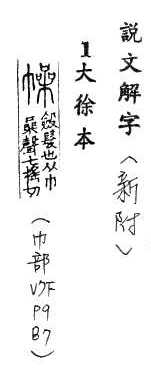 說文解字（新附）
1大徐本
幧
斂髮也从巾
喿聲七搖切
（巾部 V7下 P9 B7）